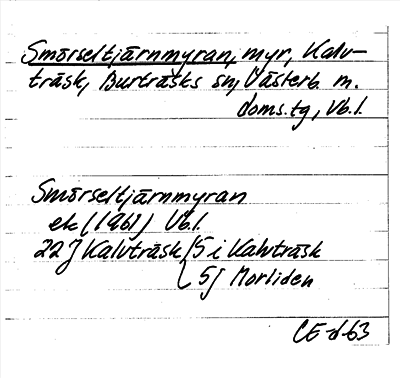 Smörseltjärnmyran, myr, Kalv-
träsk, Burträsks sn, Västerb. m.
doms.tg, Vb.l.
Smörseltjärnmyran
ek (1961) Vb.l.
22J Kalvträsk 5i Kalvträsk
5j Morliden
CE -63